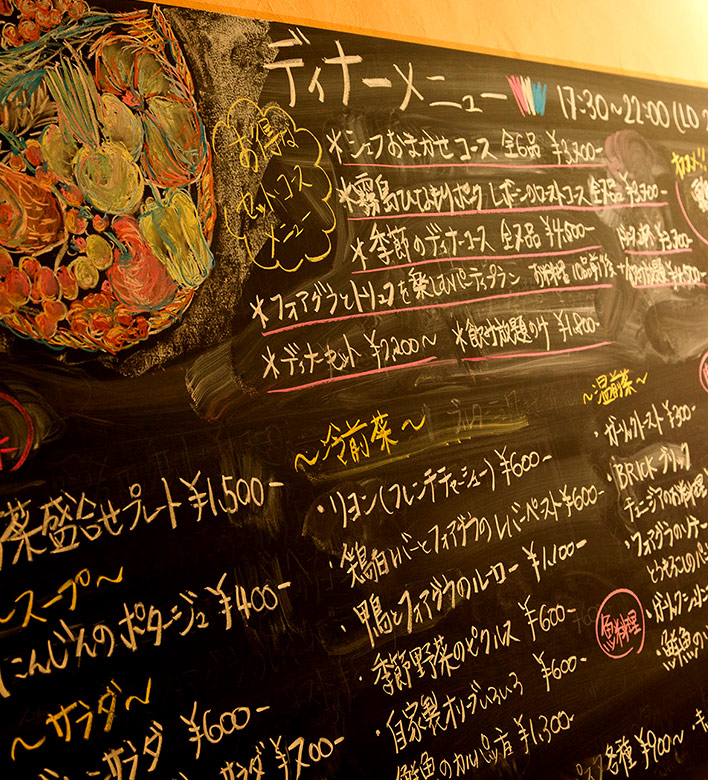 ディナーメニュー 17:30~22:00 (LO
お得な
セットコース
メニュー
*シェフおまかせコース 全6品 ¥3,200-
*霧島ひなもりポーク レギューのローストコース 全5品 ¥3,300-
*季節のディナーコース 全7品 ¥4,500-
*フォアグラとトリュフを楽しむパーティプラン お料理10品
*ディナーセット ¥2200~ *飲み放題のみ ¥1,800-
~冷前菜~
・リヨン(フレンチチャーシュー) ¥600-
・鶏白レバーとフォアグラのレバーペースト ¥600-
・鴨とフォアグラのルーロー ¥1,100-
・季節野菜のピクルス ¥600-
・自家製オリーブいろいろ ¥600-
・鮮魚のカルパッチョ ¥1,300-
~温前菜~
・ガーリックトースト ¥300-
・BRICK ブリック
チュニジアのお料理
・フォアグラのソテー
・鮮魚の
魚料理
各種 ¥900~
菜盛合せプレート ¥1,500-
~スープ~
にんじんのポタージュ ¥400-
~サラダ~
サラダ ¥600-
サラダ ¥700-